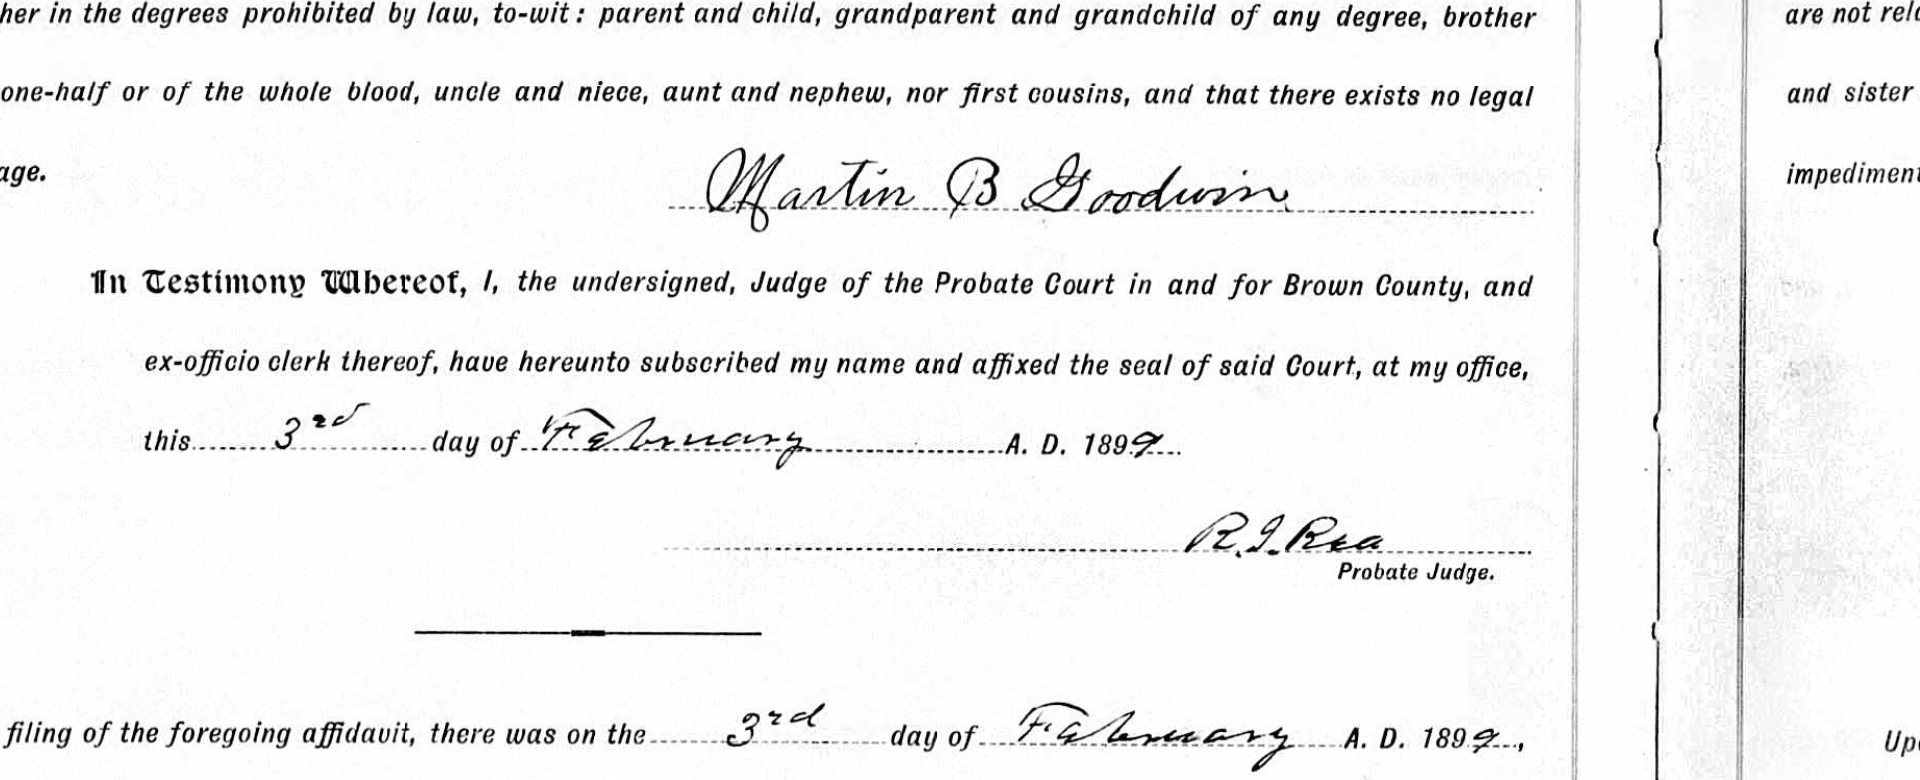 her in the degrees prohibited by law, to-wit: parent and child, grandparent and grandchild of any degree, brother
one-half or of the whole blood, uncle and niece, aunt and nephew, nor first cousins, and that there exists no legal
age.
Martin B Goodwin
In Testimony Whereof, I, the undersigned, Judge of the Probate Court in and for Brown County, and
ex-officio clerk thereof, have hereunto subscribed my name and affixed the seal of said Court, at my office,
this 3rd day of February A. D. 1899
R. I. Rea
Probate Judge.
filing of the foregoing affidavit, there was on the 3rd day of February A. D. 1899,
are not rela
and sister
impediment
Upo